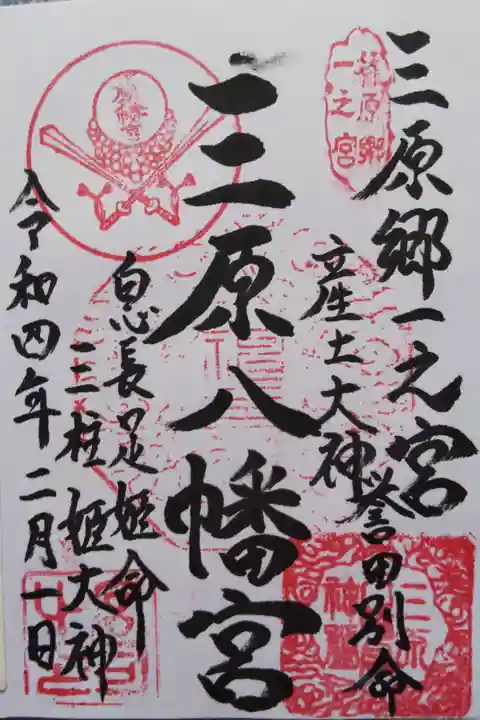 三原郷一之宮
産土大神
誉田別命
三原八幡宮
息長足姫命
三柱姫大神
令和四年二月一日
一之宮
八幡宮